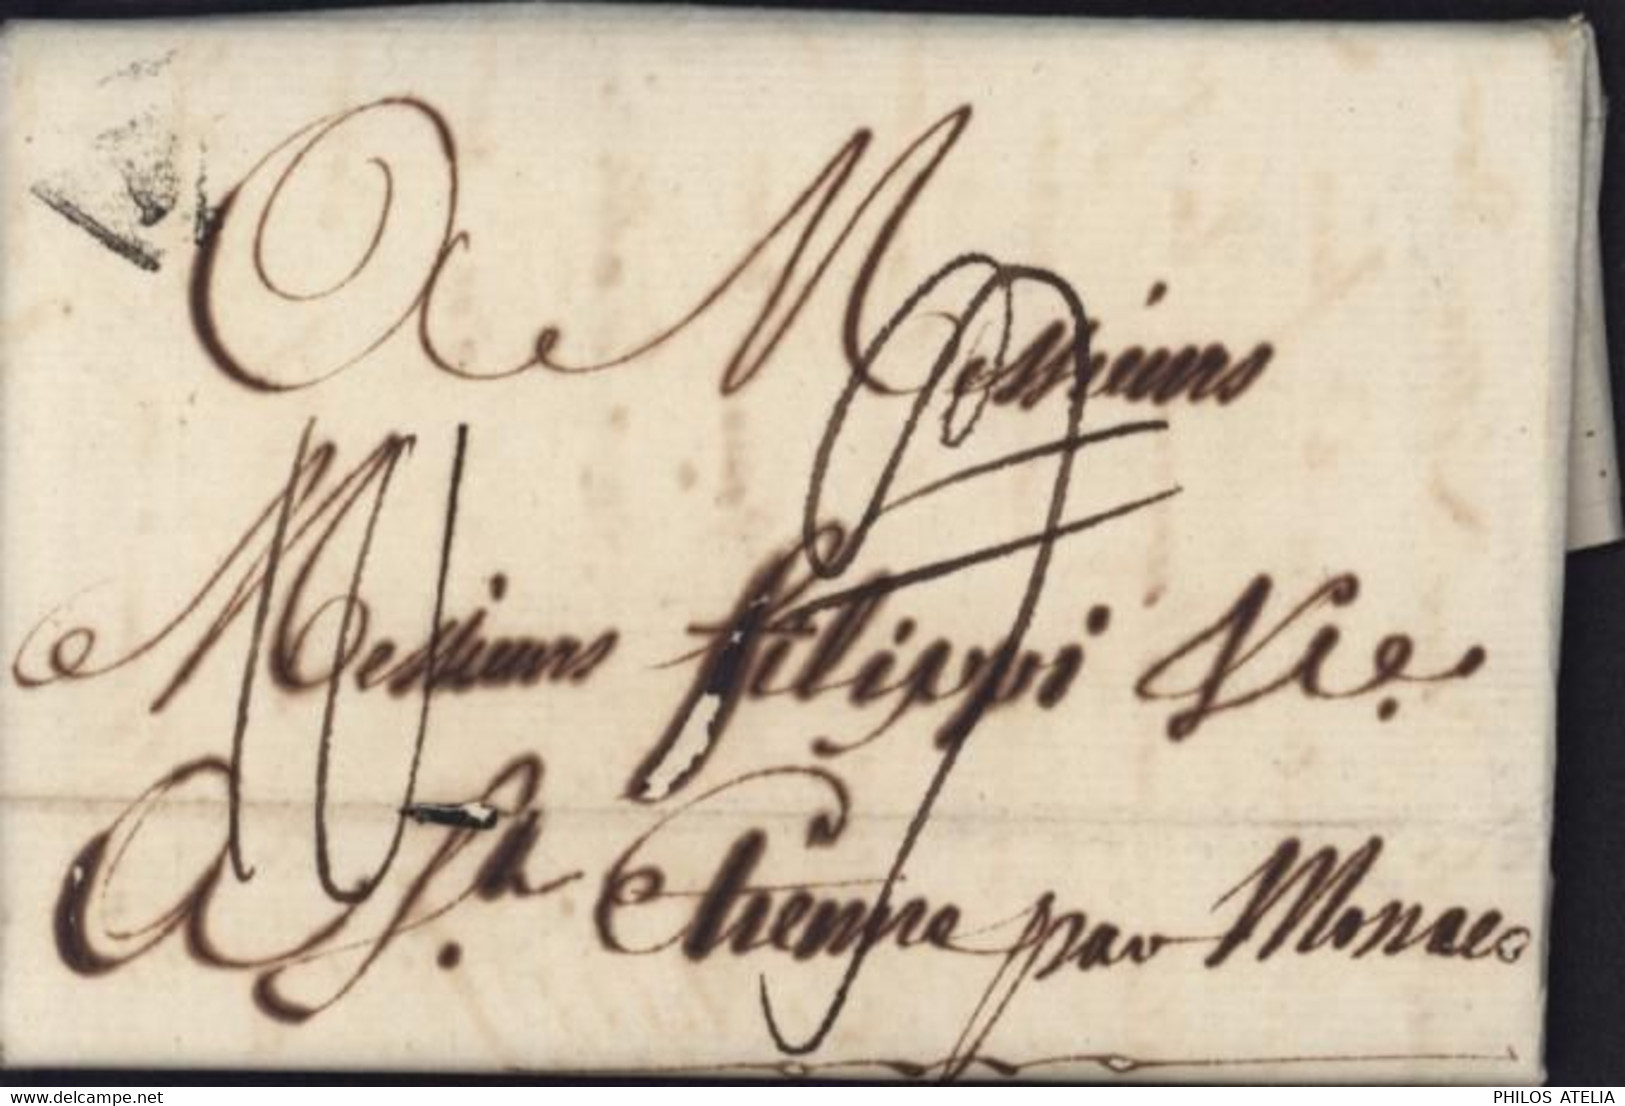 A Messieurs
Messieurs filippi
A St. Etienne par Monaco
www.delcampe.net
PHILOS ATELIA